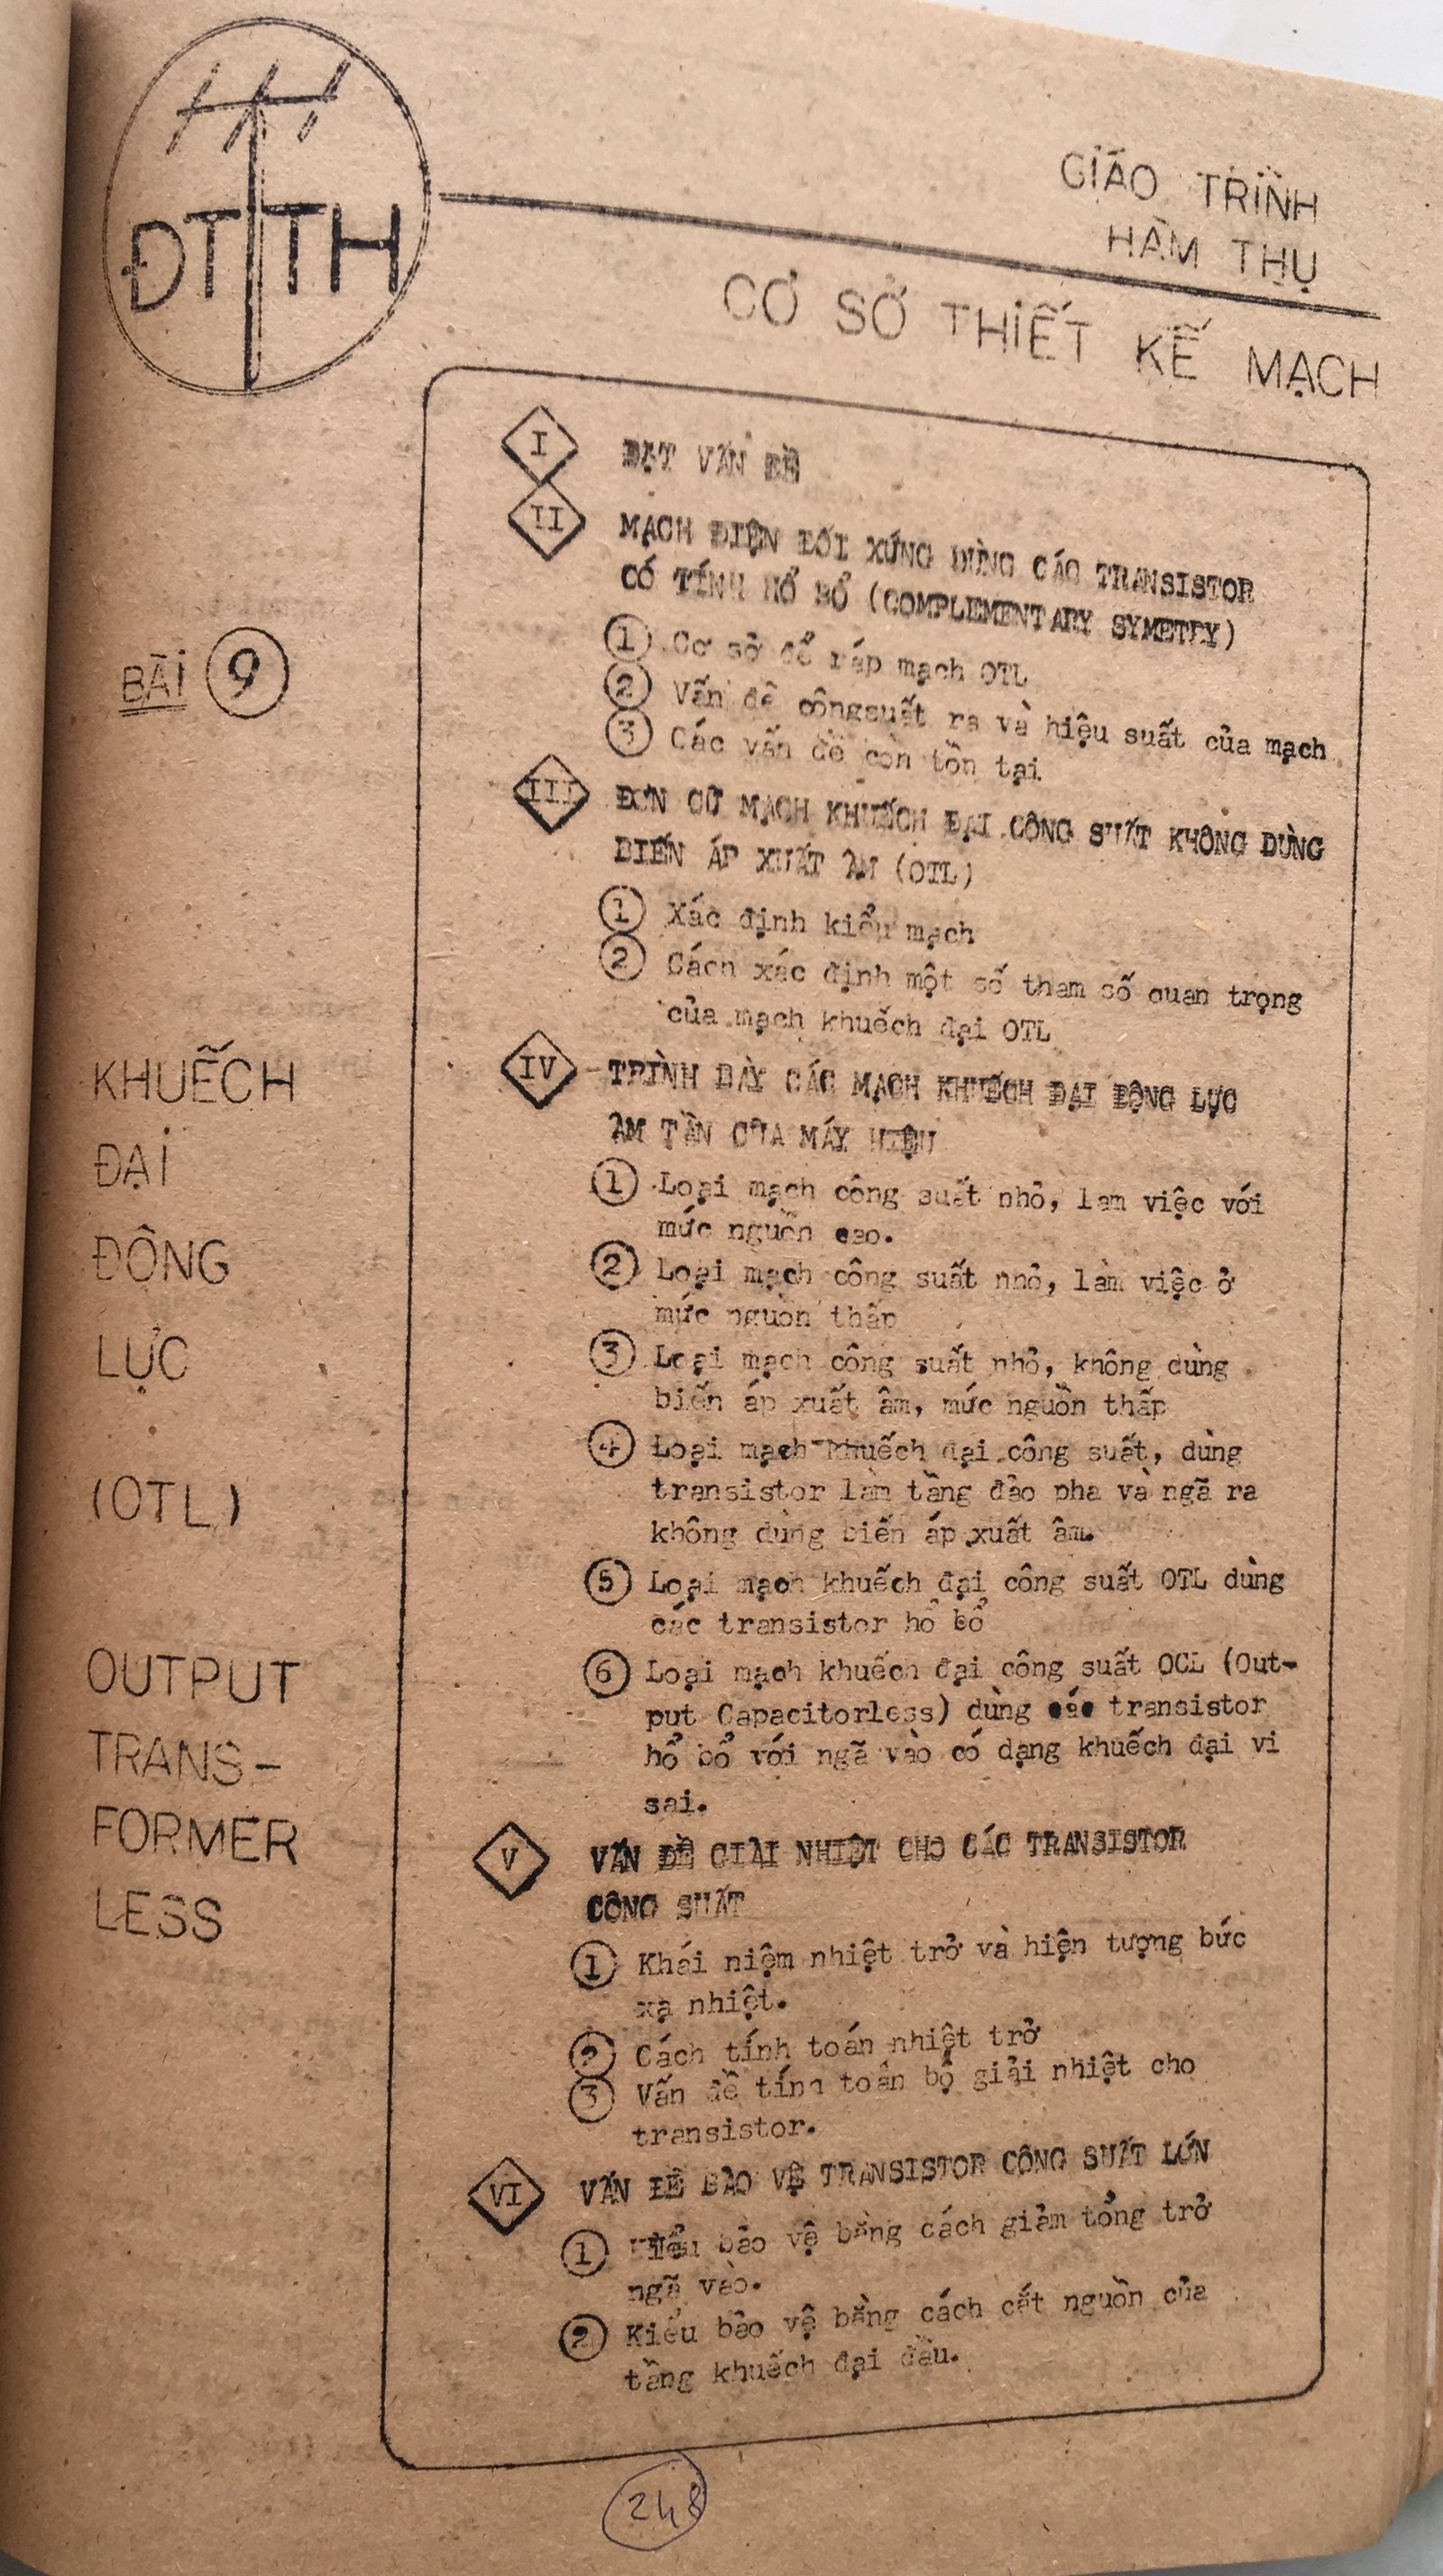 ĐTTH
GIÁO TRÌNH
HÀM THỤ
CƠ SỞ THIẾT KẾ MẠCH
BÀI 9
KHUẾCH
ĐẠI
ĐỘNG
LỰC
(OTL)
OUTPUT
TRANS-
FORMER
LESS
I ĐẶT VẤN ĐỀ
II MẠCH ĐIỆN ĐỐI XỨNG DÙNG CÁC TRANSISTOR
CÓ TÍNH HỔ BỔ (COMPLEMENTARY SYMETRY)
1 Cơ sở để ráp mạch OTL
2 Vấn đề côngsuất ra và hiệu suất của mạch
3 Các vấn đề còn tồn tại
III ĐƠN CỬ MẠCH KHUẾCH ĐẠI CÔNG SUẤT KHÔNG DÙNG
BIẾN ÁP XUẤT ÂM (OTL)
1 Xác định kiểu mạch
2 Cách xác định một số tham số quan trọng
của mạch khuếch đại OTL
IV TRÌNH BÀY CÁC MẠCH KHUẾCH ĐẠI ĐỘNG LỰC
ÂM TẦN CỦA MÁY HIỆU
1 Loại mạch công suất nhỏ, làm việc với
mức nguồn cao.
2 Loại mạch công suất nhỏ, làm việc ở
mức nguồn thấp
3 Loại mạch công suất nhỏ, không dùng
biến áp xuất âm, mức nguồn thấp
4 Loại mạch khuếch đại công suất, dùng
transistor làm tầng đảo pha và ngã ra
không dùng biến áp xuất âm.
5 Loại mạch khuếch đại công suất OTL dùng
các transistor hổ bổ
6 Loại mạch khuếch đại công suất OCL (Out-
put Capacitorless) dùng các transistor
hổ bổ với ngã vào có dạng khuếch đại vi
sai.
V VẤN ĐỀ GIẢI NHIỆT CHO CÁC TRANSISTOR
CÔNG SUẤT
1 Khái niệm nhiệt trở và hiện tượng bức
xạ nhiệt.
2 Cách tính toán nhiệt trở
3 Vấn đề tính toán bộ giải nhiệt cho
transistor.
VI VẤN ĐỀ BẢO VỆ TRANSISTOR CÔNG SUẤT LỚN
1 Kiểu bảo vệ bằng cách giảm tổng trở
ngã vào.
2 Kiểu bảo vệ bằng cách cắt nguồn của
tầng khuếch đại đầu.
248